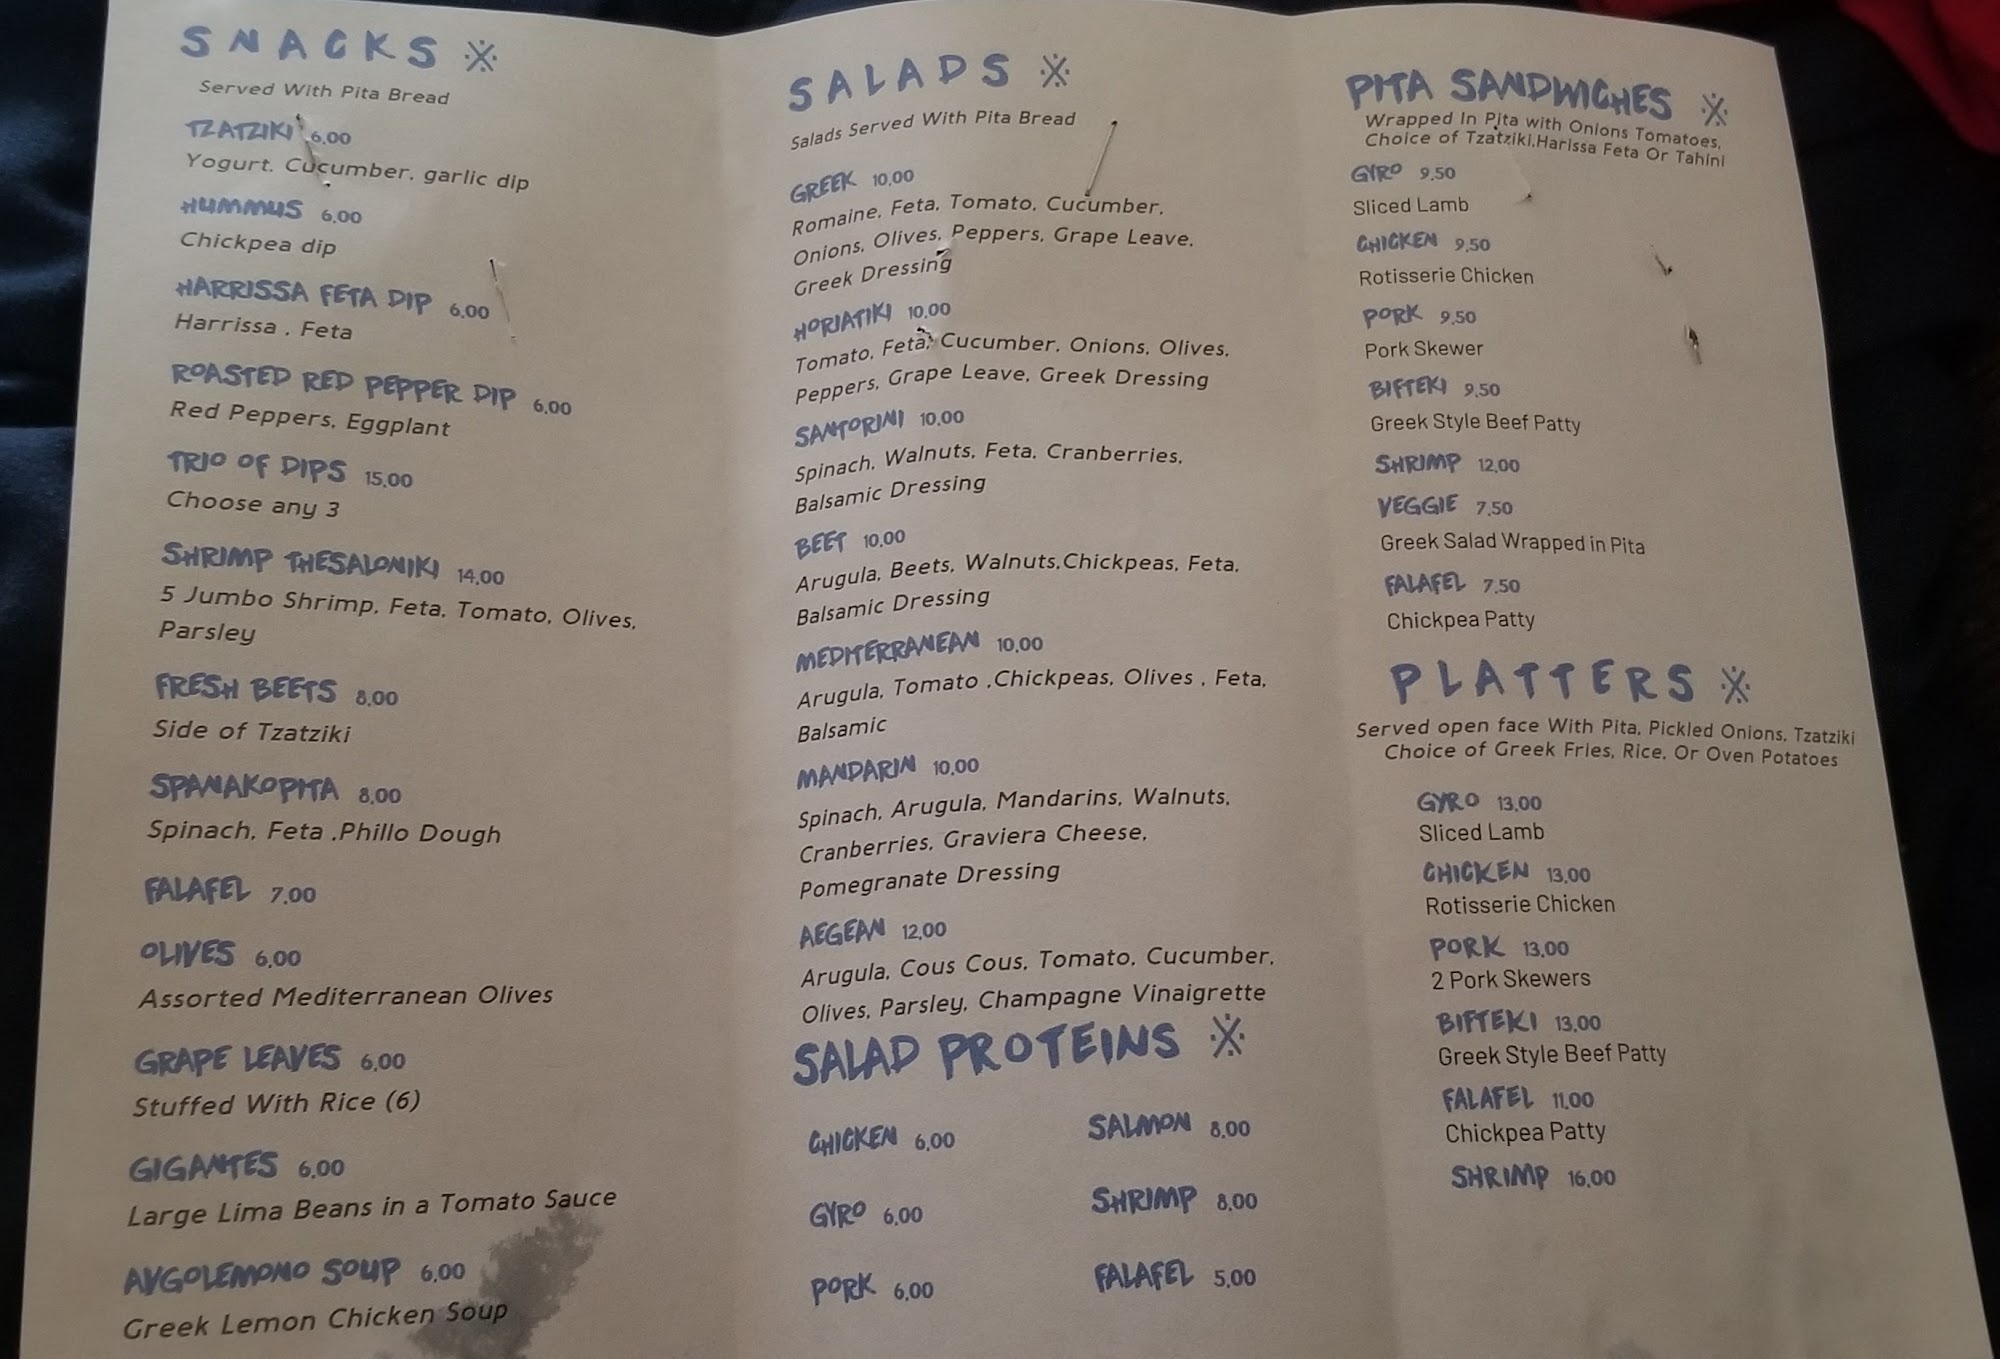 SNACKS
Served With Pita Bread
TZATZIKI 6.00
Yogurt. Cucumber. garlic dip
HUMMUS 6.00
Chickpea dip
HARRISSA FETA DIP 6.00
Harrissa . Feta
ROASTED RED PEPPER DIP 6.00
Red Peppers, Eggplant
TRIO OF DIPS 15.00
Choose any 3
SHRIMP THESALONIKI 14.00
5 Jumbo Shrimp, Feta, Tomato, Olives,
Parsley
FRESH BEETS 8.00
Side of Tzatziki
SPANAKOPITA 8.00
Spinach, Feta .Phillo Dough
FALAFEL 7.00
OLIVES 6.00
Assorted Mediterranean Olives
GRAPE LEAVES 6.00
Stuffed With Rice (6)
GIGANTES 6.00
Large Lima Beans in a Tomato Sauce
AVGOLEMONO SOUP 6.00
Greek Lemon Chicken Soup
SALADS
Salads Served With Pita Bread
GREEK 10.00
Romaine, Feta, Tomato, Cucumber,
Onions, Olives, Peppers, Grape Leave,
Greek Dressing
HORIATIKI 10.00
Tomato, Feta, Cucumber, Onions, Olives,
Peppers, Grape Leave, Greek Dressing
SANTORINI 10.00
Spinach, Walnuts, Feta, Cranberries,
Balsamic Dressing
BEET 10.00
Arugula, Beets, Walnuts,Chickpeas, Feta,
Balsamic Dressing
MEDITERRANEAN 10.00
Arugula, Tomato ,Chickpeas, Olives , Feta,
Balsamic
MANDARIN 10.00
Spinach, Arugula, Mandarins, Walnuts,
Cranberries, Graviera Cheese,
Pomegranate Dressing
AEGEAN 12.00
Arugula, Cous Cous, Tomato, Cucumber,
Olives, Parsley, Champagne Vinaigrette
SALAD PROTEINS
CHICKEN 6.00
SALMON 8.00
GYRO 6.00
SHRIMP 8.00
PORK 6.00
FALAFEL 5.00
PITA SANDWICHES
Wrapped In Pita with Onions Tomatoes,
Choice of Tzatziki,Harissa Feta Or Tahini
GYRO 9.50
Sliced Lamb
CHICKEN 9.50
Rotisserie Chicken
PORK 9.50
Pork Skewer
BIFTEKI 9.50
Greek Style Beef Patty
SHRIMP 12.00
VEGGIE 7.50
Greek Salad Wrapped in Pita
FALAFEL 7.50
Chickpea Patty
PLATTERS
Served open face With Pita, Pickled Onions, Tzatziki
Choice of Greek Fries, Rice, Or Oven Potatoes
GYRO 13.00
Sliced Lamb
CHICKEN 13.00
Rotisserie Chicken
PORK 13.00
2 Pork Skewers
BIFTEKI 13.00
Greek Style Beef Patty
FALAFEL 11.00
Chickpea Patty
SHRIMP 16.00